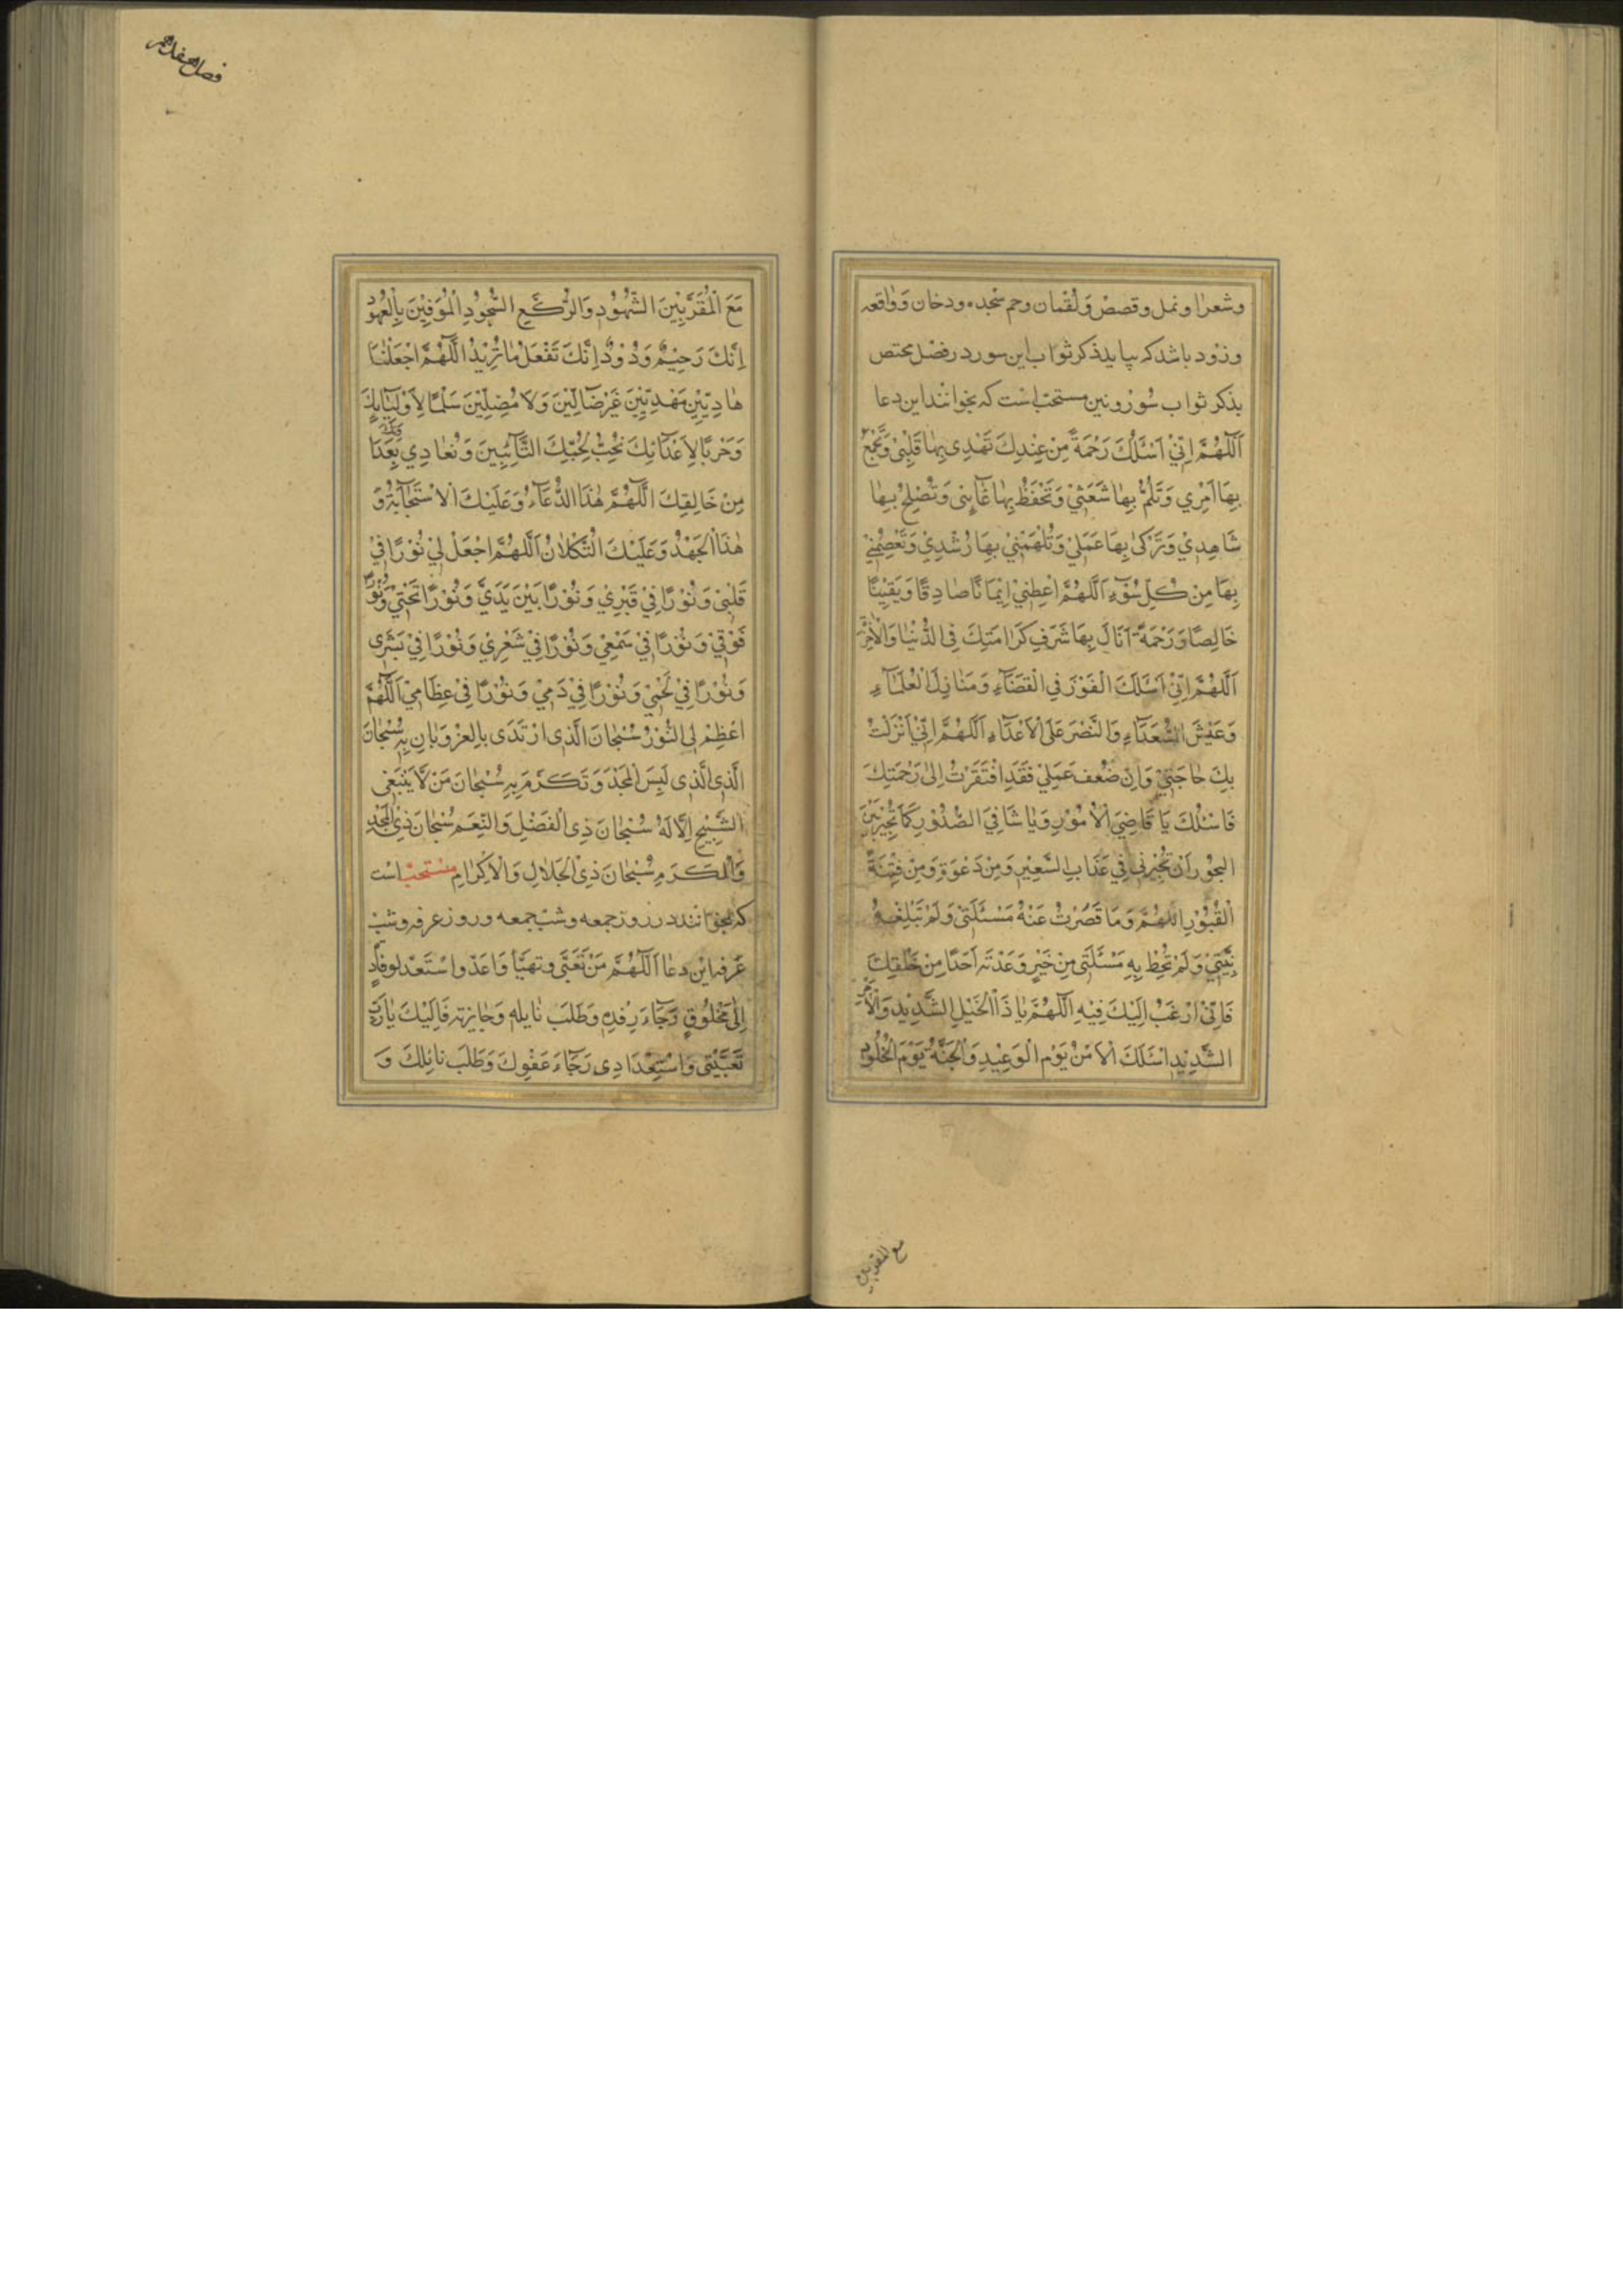 وشعرا ونمل وقصص وَلُقْمان وحم سَجْده ودخان وَواقعه
وزود باشد كه بيايد ذكر ثواب اين سور در فصل مختص
بذكر ثواب سُوَر ونيز مستحبّ است كه بخوانند اين دعا
اَللّٰهُمَّ اِنّيْ اَسْئَلُكَ رَحْمَةً مِنْ عِنْدِكَ تَهْدِى بِهٰا قَلْبْى وَتَجْمَعُ
بِهَا اَمْرِي وَتَلُمُّ بِهٰا شَعَثيْ وَتَحْفَظُ بِهٰا غٰآئِبى وَتُصْلِحُ بِهٰا
شَاهِدِيْ وَتُزَكّى بِهَا عَمَلِيْ وَتُلْهِمَنِيْ بِهَا رُشْدِيْ وَتَعْصِمُنِيْ
بِهَا مِنْ كُلِّ سُوْٓءٍ اَللّٰهُمَّ اعْطِنيْ اِيْمَانًا صٰادِقًا وَيَقِيْنًا
خَالِصًا وَرَحْمَةً اَنَالَ بِهَا شَرَفِ كَرٰامَتِكَ فِى الدُّنْيٰا وَالْاٰخِرَةِ
اَللّٰهُمَّ اِنّيْ اَسْئَلَكَ الْفَوْزَ فِي الْقَضَآءِ وَمَنٰازِلَ الْعُلَمَآءِ
وَعَيْشَ السُّعَدَآءِ وَالنَّصْرَ عَلَى الْاَعْدَآءِ اَللّٰهُمَّ اِنّيْ اَنْزَلْتُ
بِكَ حٰاجَتيْ وَاِنْ ضَعُفَ عَمَلِيْ فَقَدِ افْتَقَرْتُ اِلىٰ رَحْمَتِكَ
فَاسْئَلُكَ يَا قَاضِيَ الْاُمُوْرِ وَيٰا شَافِيَ الصُّدُوْرِ كَمَا تُجِيْرُ بَيْنَ
البحُوْرِ اَنْ تُجِيْرَنى فِي عَذَابِ السَّعِيْرِ وَمِنْ دَعْوَةِ وَمِنْ فِتْنَةِ
الْقُبُوْرِ اللّٰهُمَّ وَمَا قَصُرْتُ عَنْهُ مَسْئَلَتى وَلَمْ تَبْلِغْهُ
نِيَّتيْ وَلَمْ تُحِطْ بِهِ مَسْئَلَتى مِنْ خَيْرٍ وَعَدْتَه اَحَدًا مِنْ خَلْقِكَ
فَاِنّيْ اَرْغَبُ اِلَيْكَ فِيْهِ اَللّٰهُمَّ يٰا ذَا الْحَبْلِ الشَّدِيْدِ وَالْاَمْرِ
الشَّدِيْدِ اسْئَلَكَ الْاَمْنَ يَوْمَ الْوَعِيْدِ وَالْجَنَّةَ يَوْمَ الْخُلُوْدِ
مع المقربين
فصل هفدهم
مَعَ الْمُقَرَّبِيْنَ الشُّهُوْدِ وَالرُّكَّعِ السُّجُوْدِ الْمُوْفِيْنَ بِالْعُهُوْدِ
اِنَّكَ رَحِيْمٌ وَدُوْدٌ اِنَّكَ تَفْعَلُ مٰا تُرِيْدُ اللّٰهُمَّ اجْعَلْنٰا
هٰادِيْيْنَ مَهْدِيّيْنَ غَيْرَ ضَآلّيْنَ وَلَا مُضِلّيْنَ سَلْمًا لِاَوْلِيٰآئِكَ
وَحَرْبًا لِاَعْدَآئِكَ نُحِبُّ بِحُبِّكَ التَّآئِبِيْنَ وَنُعٰادِي بِعَدَا
وَتِكَ
مِنْ خَالِقِكَ اللّٰهُمَّ هٰذَا الدُّعَآءُ وَعَلَيْكَ الْاسْتِجٰابَةُ وَ
هٰذَا الْجَهْدُ وَعَلَيْكَ التُّكْلَانُ اَللّٰهُمَّ اجْعَلْ لِيْ نُوْرًا فِيْ
قَلْبْى وَنُوْرًا فِيْ قَبْرِيْ وَنُوْرًا بَيْنَ يَدَيَّ وَنُوْرًا تَحْتيْ وَنُوْرًا
فَوْقِيْ وَنُوْرًا فِيْ سَمْعِيْ وَنُوْرًا فِيْ شَعْرِيْ وَنُوْرًا فِيْ بَشَرى
وَنُوْرًا فِيْ لَحْمِيْ وَنُوْرًا فِيْ دَمِيْ وَنُوْرًا فِيْ عِظَامِيْ اَللّٰهُمَّ
اَعْظِمْ لِى النُّوْرَ سُبْحَانَ الَّذِى ارْتَدَى بالِعزْ وَبٰانِ بِهِ سُبْحٰانَ
الَّذِى الَّذِى لَبِسَ الْمَجْدَ وَتَكَرَّمَ بِهِ سُبْحَانَ مَنْ لَا يَنْبَغى
التَّسْبِيْحِ اِلَّا لَهُ سُبْحَانَ ذِى الْفَضْلِ وَالنِّعَمِ سُبْحَانَ ذِى الْمَجْدِ
وَالْكَرَمِ سُبْحَانَ ذِى الْجَلَالِ وَالْاِكْرَامِ مستحبّ است
كه بخوانند در روز جمعه وشب جمعه وروز عرفه وشب
عَرفه اين دعا اَللّٰهُمَّ مَنْ تَعَبَّى وَتهَيَّأ وَاَعَدّ واسْتَعَدَّ لوِفادَةٍ
اِلىٰ مَخْلُوْقٍ رَجَآءَ رِفْدِهِ وَطَلَبَ نٰايلِه وَجٰايزته فَاِلَيْكَ يٰارَبّ
تَعْبِيَتى وَاسْتِعْدَادِى رَجَآءَ عَفْوِكَ وَطَلَبَ نائِلِكَ وَ